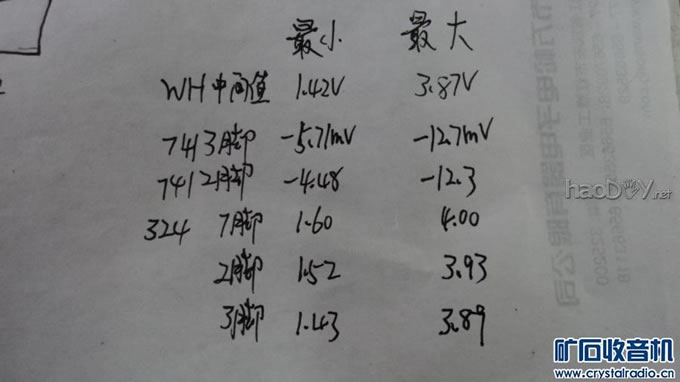 最小 最大
WH中间值 1.42V 3.87V
741 3脚 -5.71mV -12.7mV
741 2脚 -4.48 -12.3
324 7脚 1.60 4.00
2脚 1.52 3.93
3脚 1.43 3.89
haoDIY.net
矿石收音机
www.crystalradio.cn